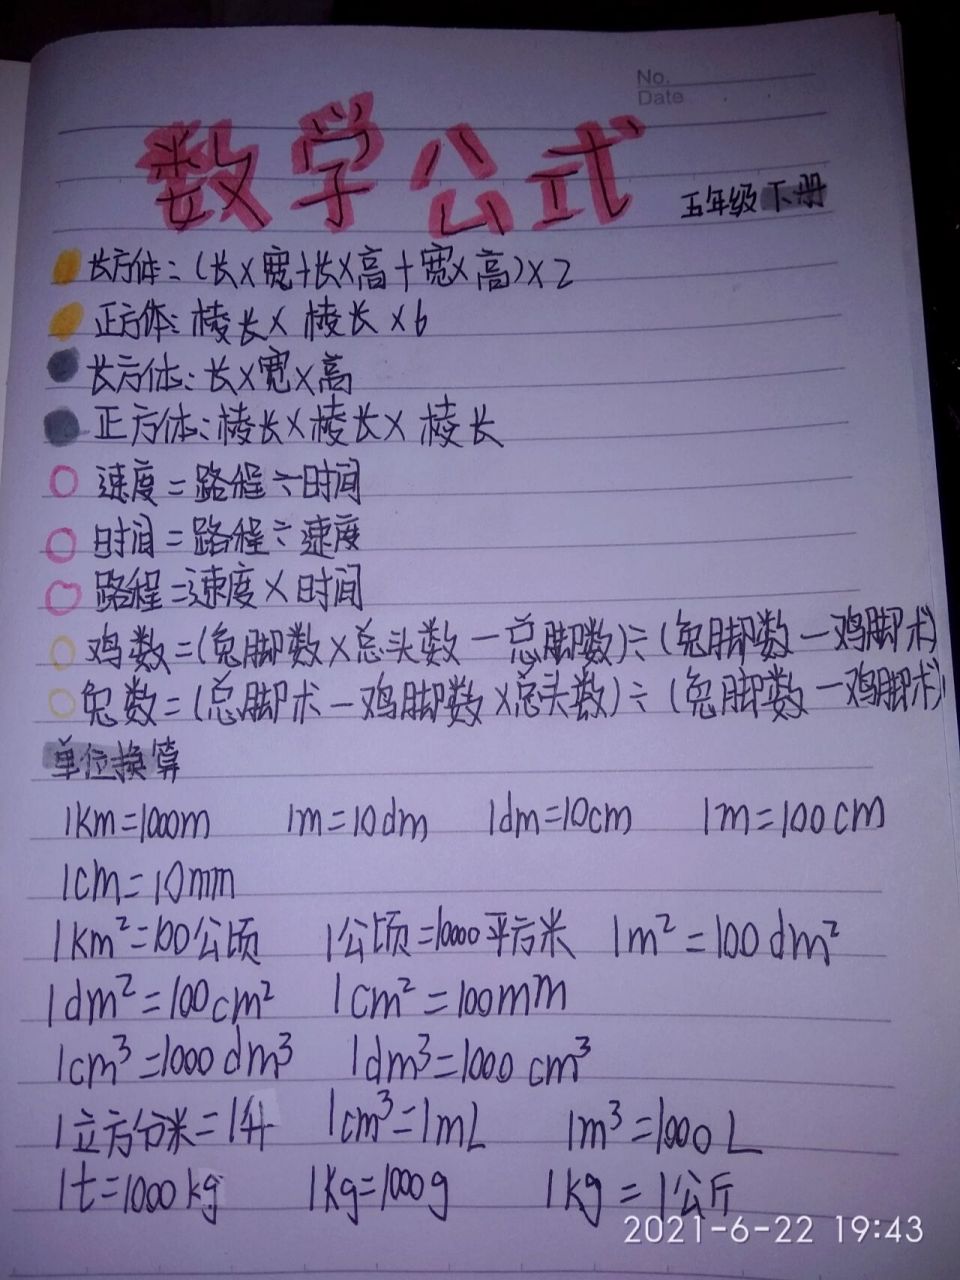 No.
Date
数学公式
五年级下册
长方体:(长×宽+长×高+宽×高)×2
正方体:棱长×棱长×6
长方体:长×宽×高
正方体:棱长×棱长×棱长
速度=路程÷时间
时间=路程÷速度
路程=速度×时间
鸡数=(兔脚数×总头数-总脚数)÷(兔脚数-鸡脚术)
兔数=(总脚术-鸡脚数×总头数)÷(兔脚数-鸡脚术)
单位换算
1km=1000m 1m=10dm 1dm=10cm 1m=100cm
1cm=10mm
1km²=100公顷 1公顷=10000平方米 1m²=100dm²
1dm²=100cm² 1cm²=100mm
1cm³=1000dm³ 1dm³=1000cm³
1立方分米=1升 1cm³=1mL 1m³=1000L
1t=1000kg 1kg=1000g 1kg=1公斤
2021-6-22 19:43